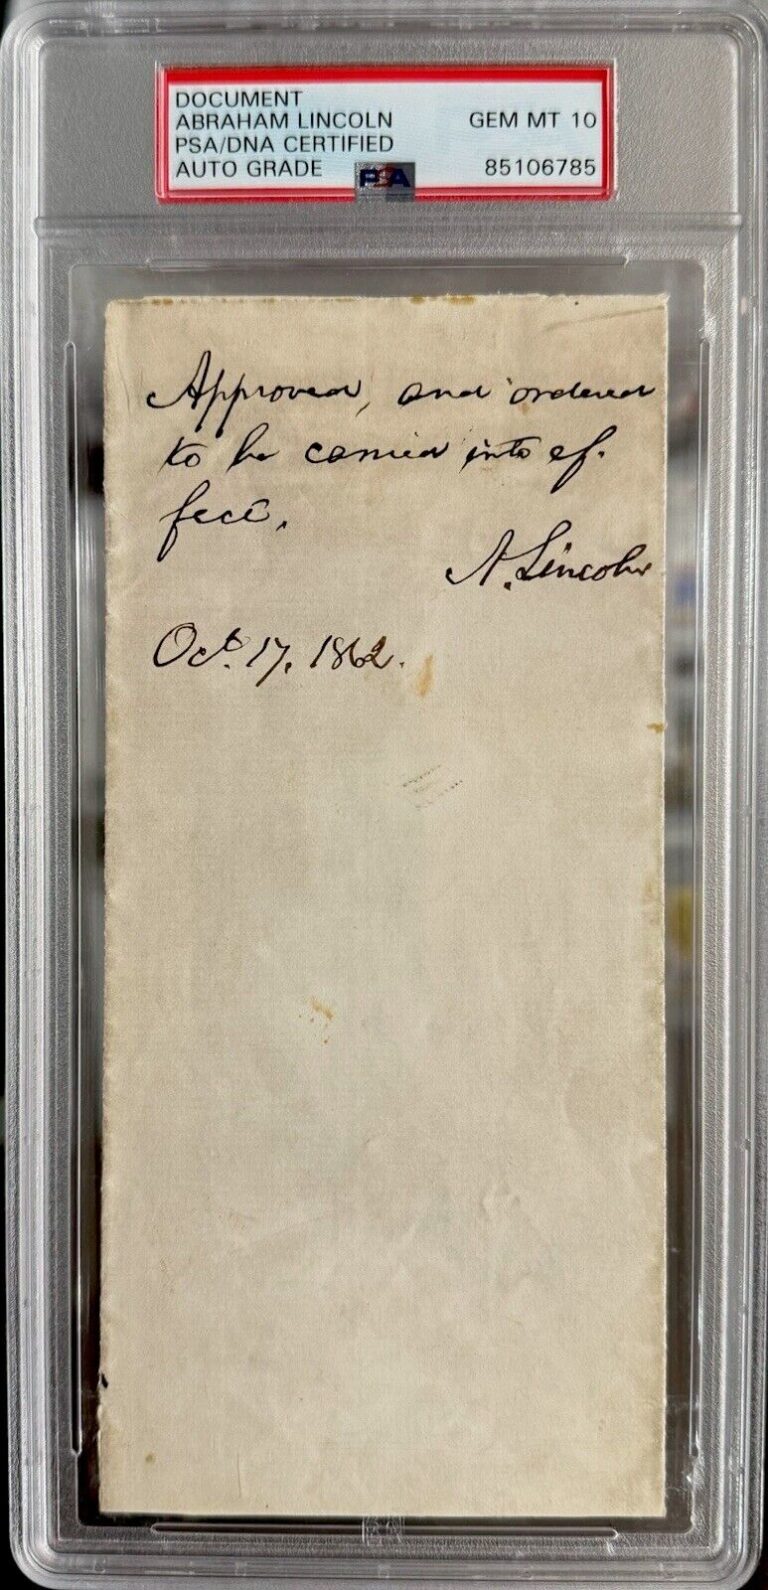 DOCUMENT
ABRAHAM LINCOLN GEM MT 10
PSA/DNA CERTIFIED
AUTO GRADE PSA 85106785
Approved, and ordered
to be carried into ef-
fect.
A. Lincoln
Oct. 17, 1862.